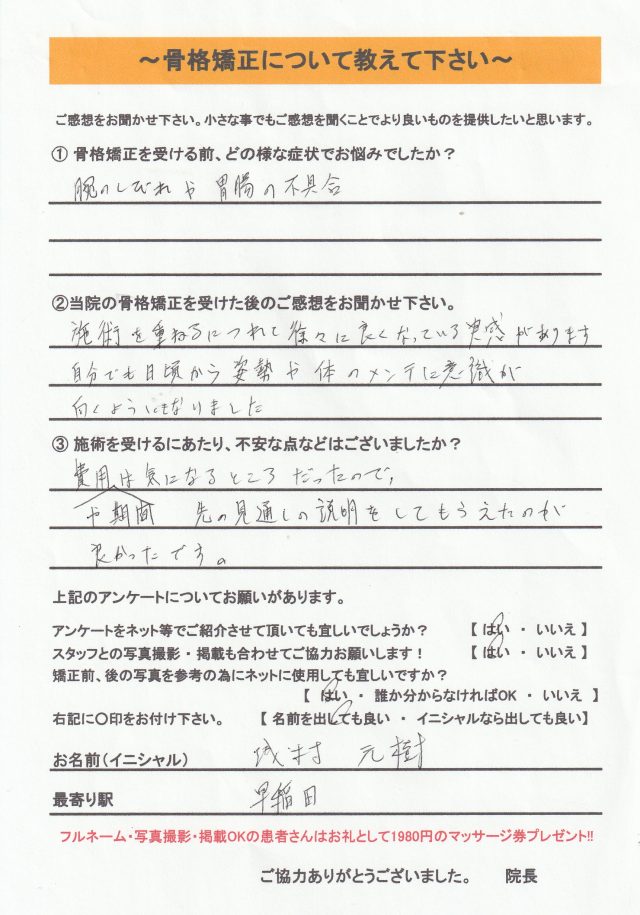 ～骨格矯正について教えて下さい～
ご感想をお聞かせ下さい。小さな事でもご感想を聞くことでより良いものを提供したいと思います。
① 骨格矯正を受ける前、どの様な症状でお悩みでしたか？
腕のしびれや胃腸の不具合
②当院の骨格矯正を受けた後のご感想をお聞かせ下さい。
施術を重ねるにつれて徐々に良くなっている実感があります
自分でも日頃から姿勢や体のメンテに意識が
向くようにもなりました
③ 施術を受けるにあたり、不安な点などはございましたか？
費用は気になるところだったので、
や期間 先の見通しの説明をしてもらえたのが
良かったです。
上記のアンケートについてお願いがあります。
アンケートをネット等でご紹介させて頂いても宜しいでしょうか？ 【 はい ・ いいえ 】
スタッフとの写真撮影・掲載も合わせてご協力お願いします！ 【 はい ・ いいえ 】
矯正前、後の写真を参考の為にネットに使用しても宜しいですか？
【 はい ・ 誰か分からなければOK ・ いいえ 】
右記に〇印をお付け下さい。 【 名前を出しても良い ・ イニシャルなら出しても良い】
お名前（イニシャル） 城村 元樹
最寄り駅 早稲田
フルネーム・写真撮影・掲載OKの患者さんはお礼として1980円のマッサージ券プレゼント!!
ご協力ありがとうございました。 院長